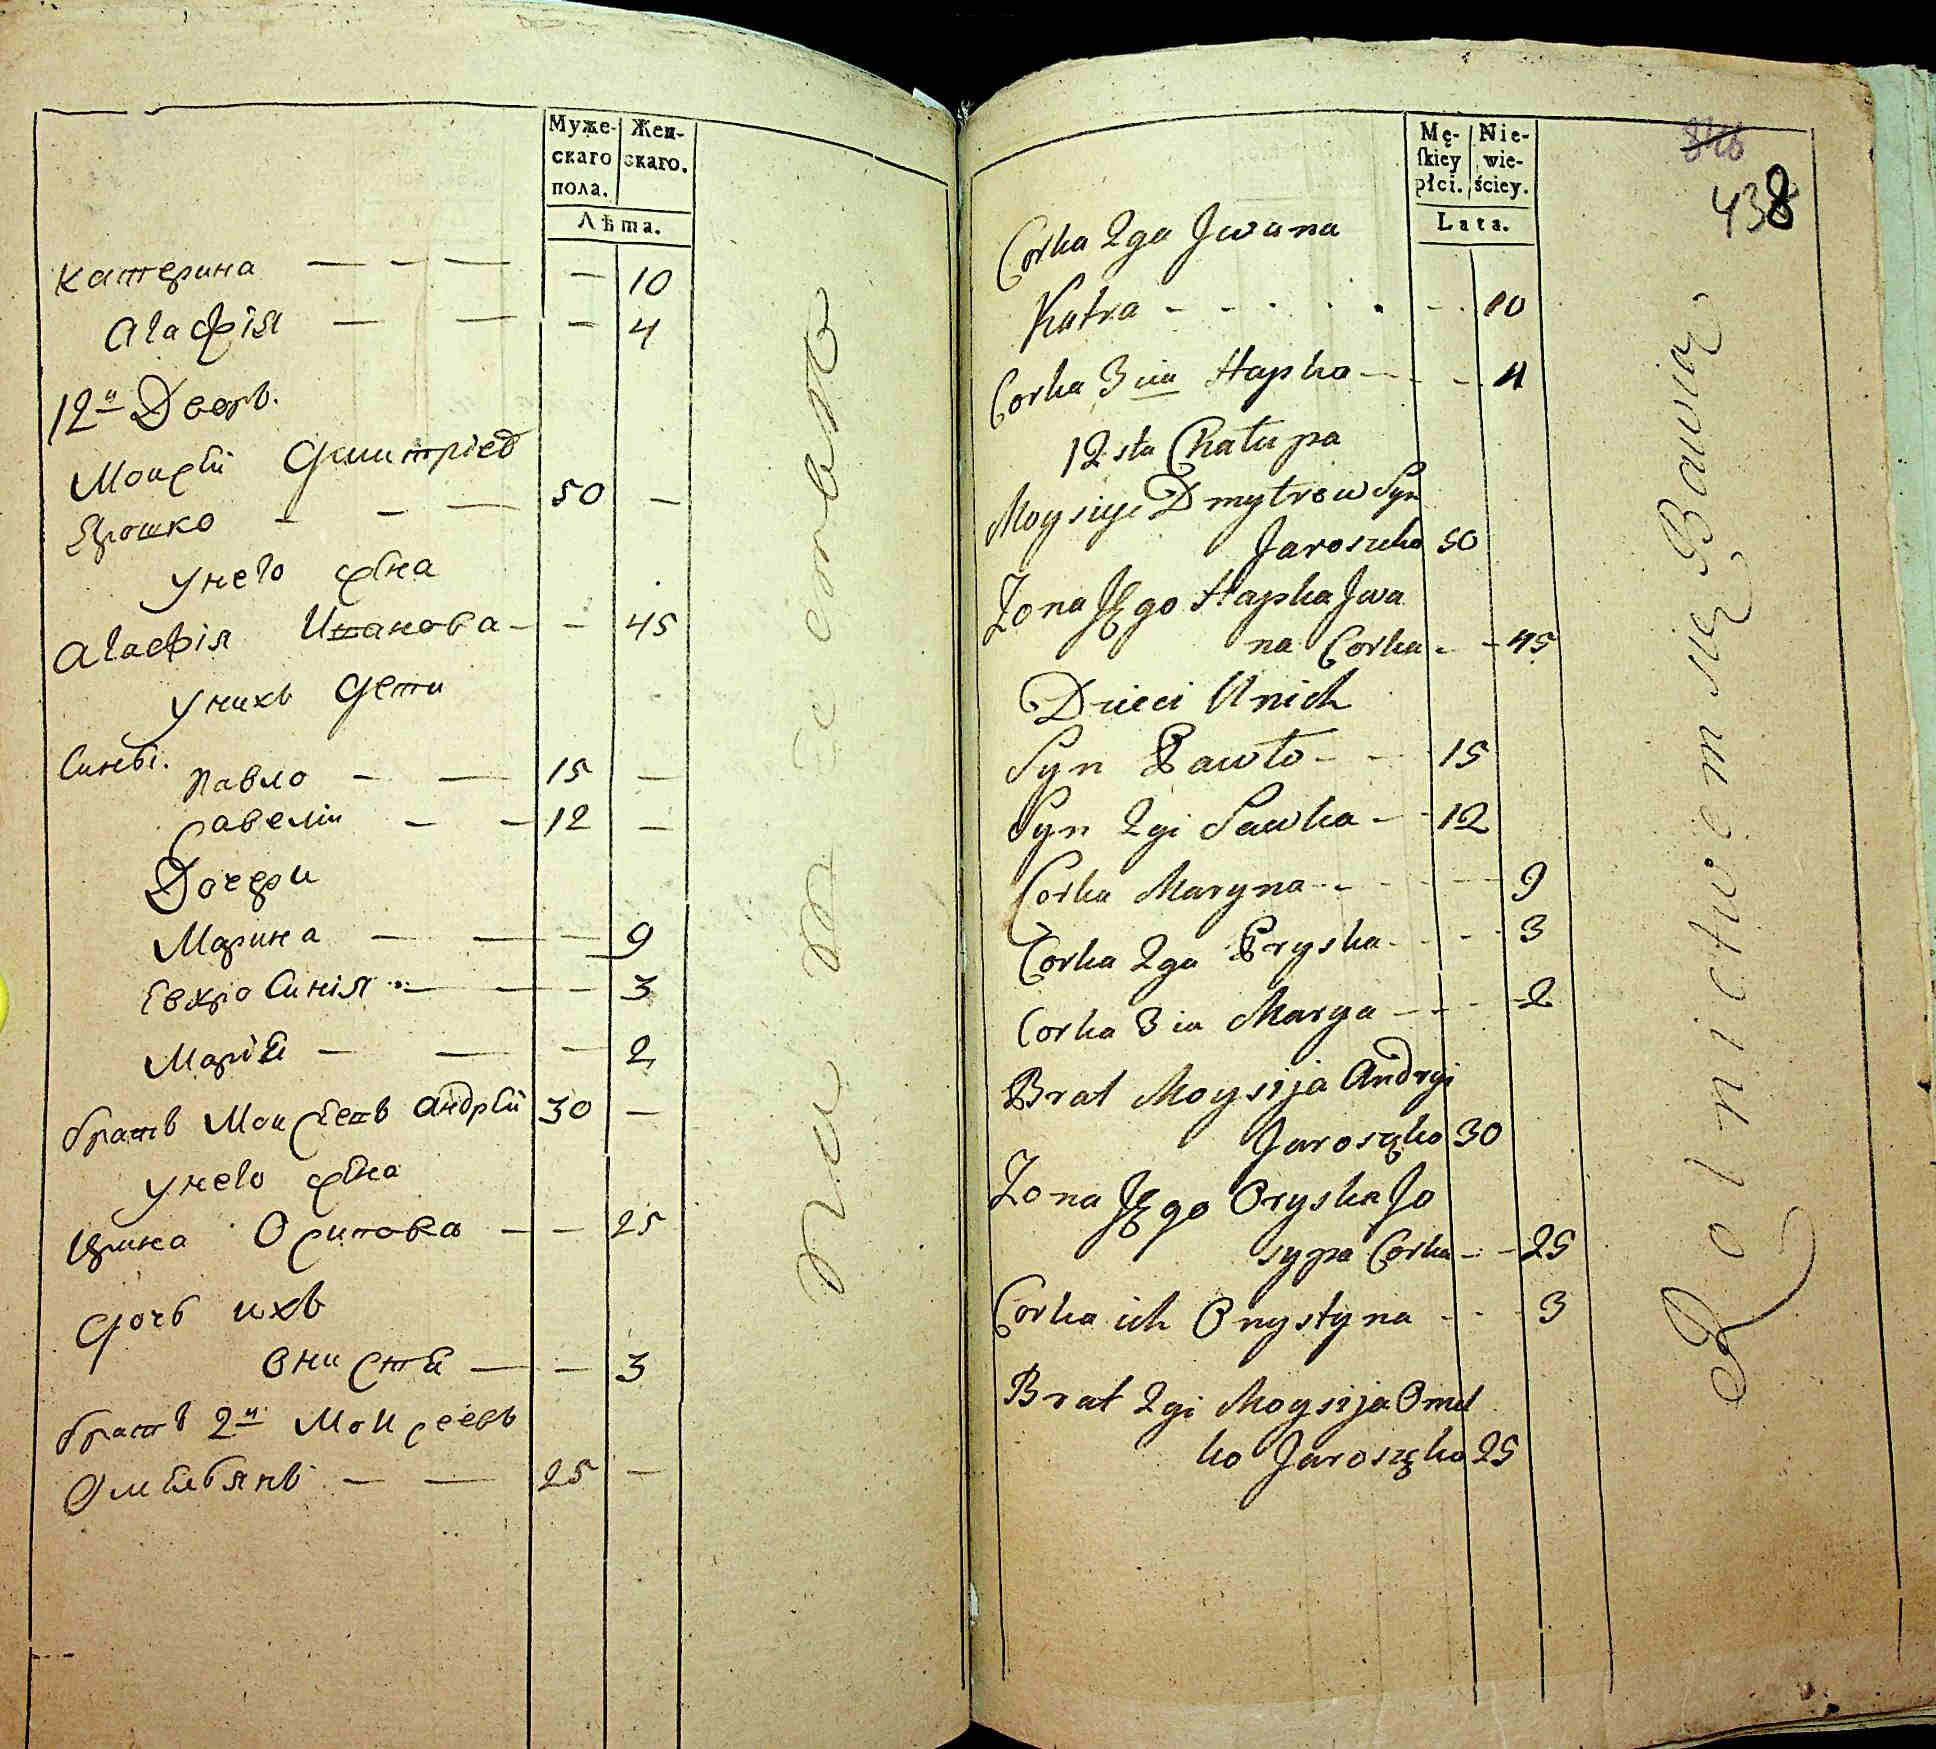 Муже-
скаго
пола.
Жен-
скаго.
Лѣта.
Катерина — — — — 10
Агафія — — — 4
12й Дворъ.
Моисѣй Дмитріев
Ерошко — — — 50 —
у него жѣна
Агафія Иванова — — 45
у нихъ дети
Сины.
Павло — — 15 —
Савелій — — 12 —
Дочери
Марина — — — 9
Евхросинія — — — 3
Марія — — — 2
братъ Моисѣевъ Андрѣй 30 —
у него жѣна
Ирина Осипова — — 25
дочь ихъ
Онисія — — 3
братъ 2й Моисеевъ
Омелянъ — — 25 —
Mę-
skiey
płci.
Nie-
wie-
ściey.
Lata.
438
Corka 2ga Jwana
Katra - - - - - - 10
Corka 3cia Hapka - - - 4
12sta Chałupa
Moysiyi Dmytrow Syn
Jaroszko 50
Zona JEgo Hapka Jwa
na Corka - - 45
Dzieci Unich
Syn Pawło - - 15
Syn 2gi Sawka - - 12
Corka Maryna - - - 9
Corka 2ga Pryska - - - 3
Corka 3cia Marya - - - 2
Brat Moysija Andryi
Jaroszko 30
Zona JEgo Oryska Jo
sypa Corka - - 25
Corka ich Onystyna - - - 3
Brat 2gi Moysija Omel
ko Jaroszko 25
Rolnictwem się Bawią